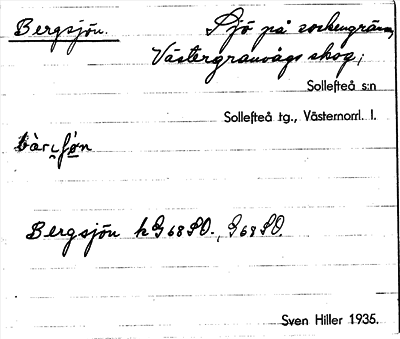 Bergsjön. Sjö på sockengräns,
Västergranvågs skog;
Sollefteå s:n
Sollefteå tg., Västernorrl. l.
Bergsjön hG 68 SO., G 68 SO.
Sven Hiller 1935.